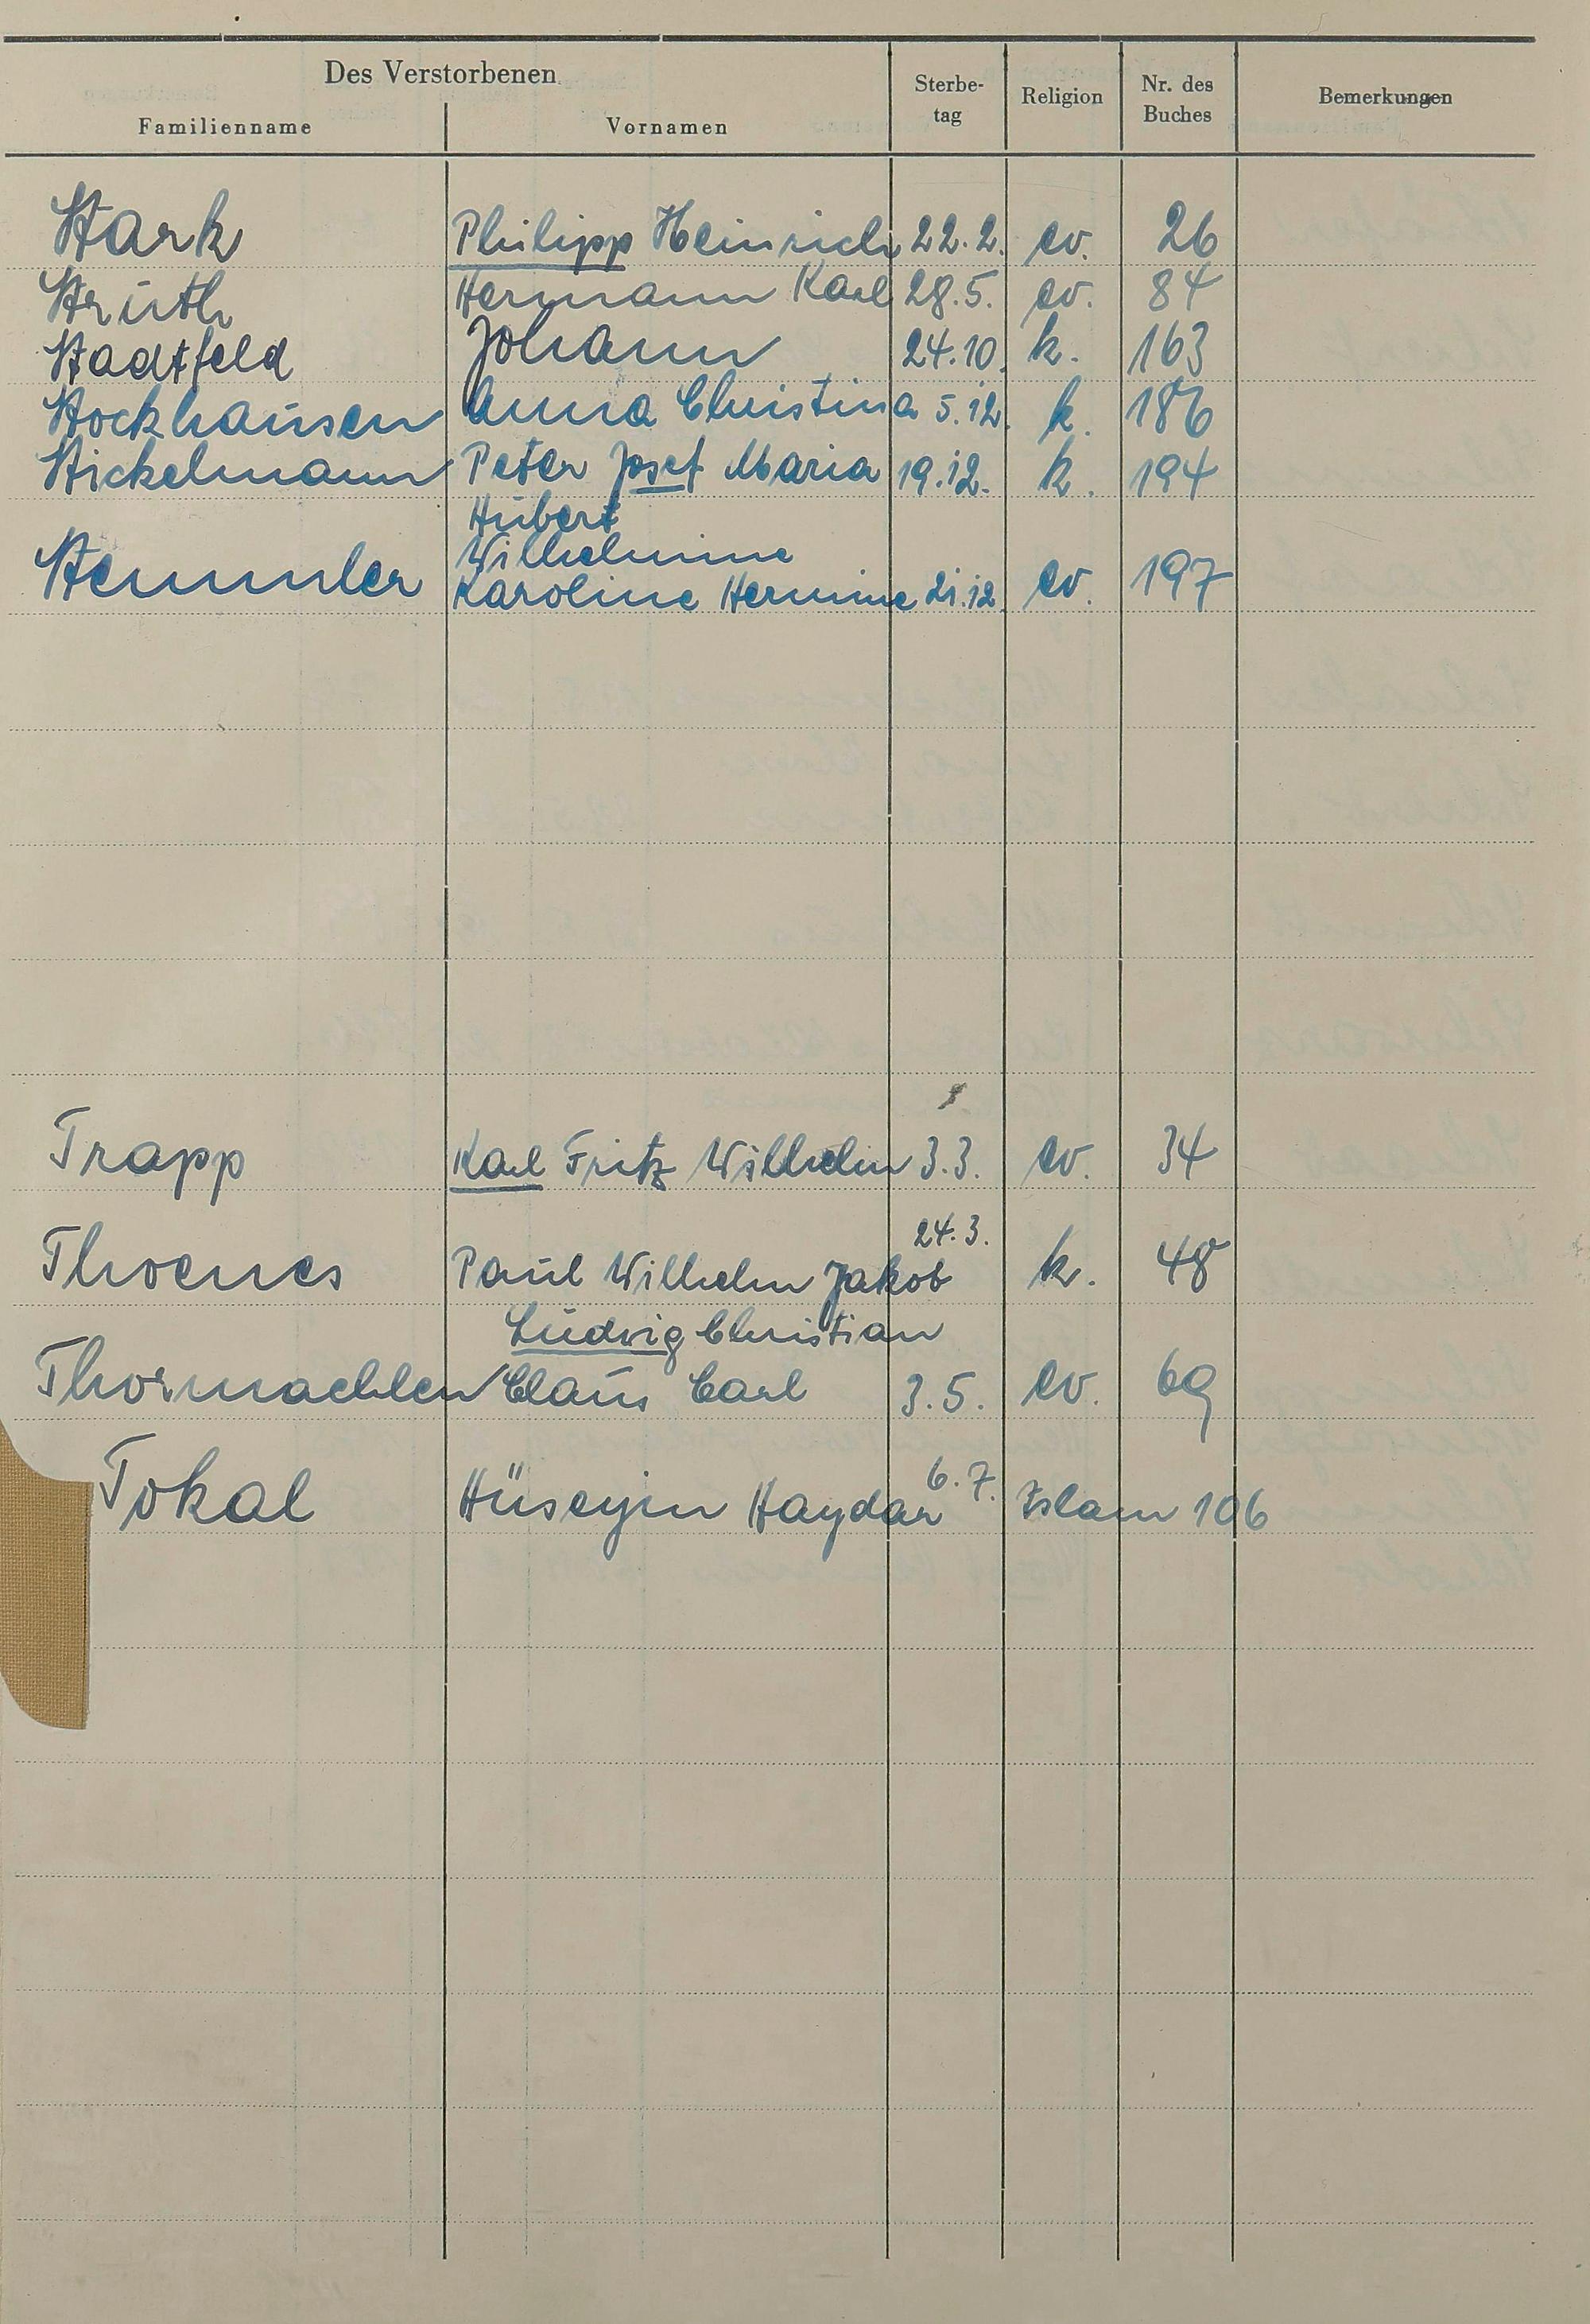 Des Verstorbenen
Familienname Vornamen Sterbe-tag Religion Nr. des Buches Bemerkungen
Stark Philipp Heinrich 22.2. ev. 26
Struth Hermann Karl 28.5. ev. 84
Stadtfeld Johann 24.10. k. 163
Stockhausen Anna Christina 5.12. k. 186
Stickelmann Peter Josef Maria 19.12. k. 194
Hubert
Wilhelmine
Stemmler Karoline Hermine 21.12. ev. 197
Trapp Karl Fritz Wilhelm 3.3. ev. 34
Thoenes Paul Wilhelm Jakob 24.3. k. 48
Ludwig Christian
Thormaehlen Claus Carl 3.5. ev. 69
Tokal Hüseyin Haydar 6.7. Islam 106